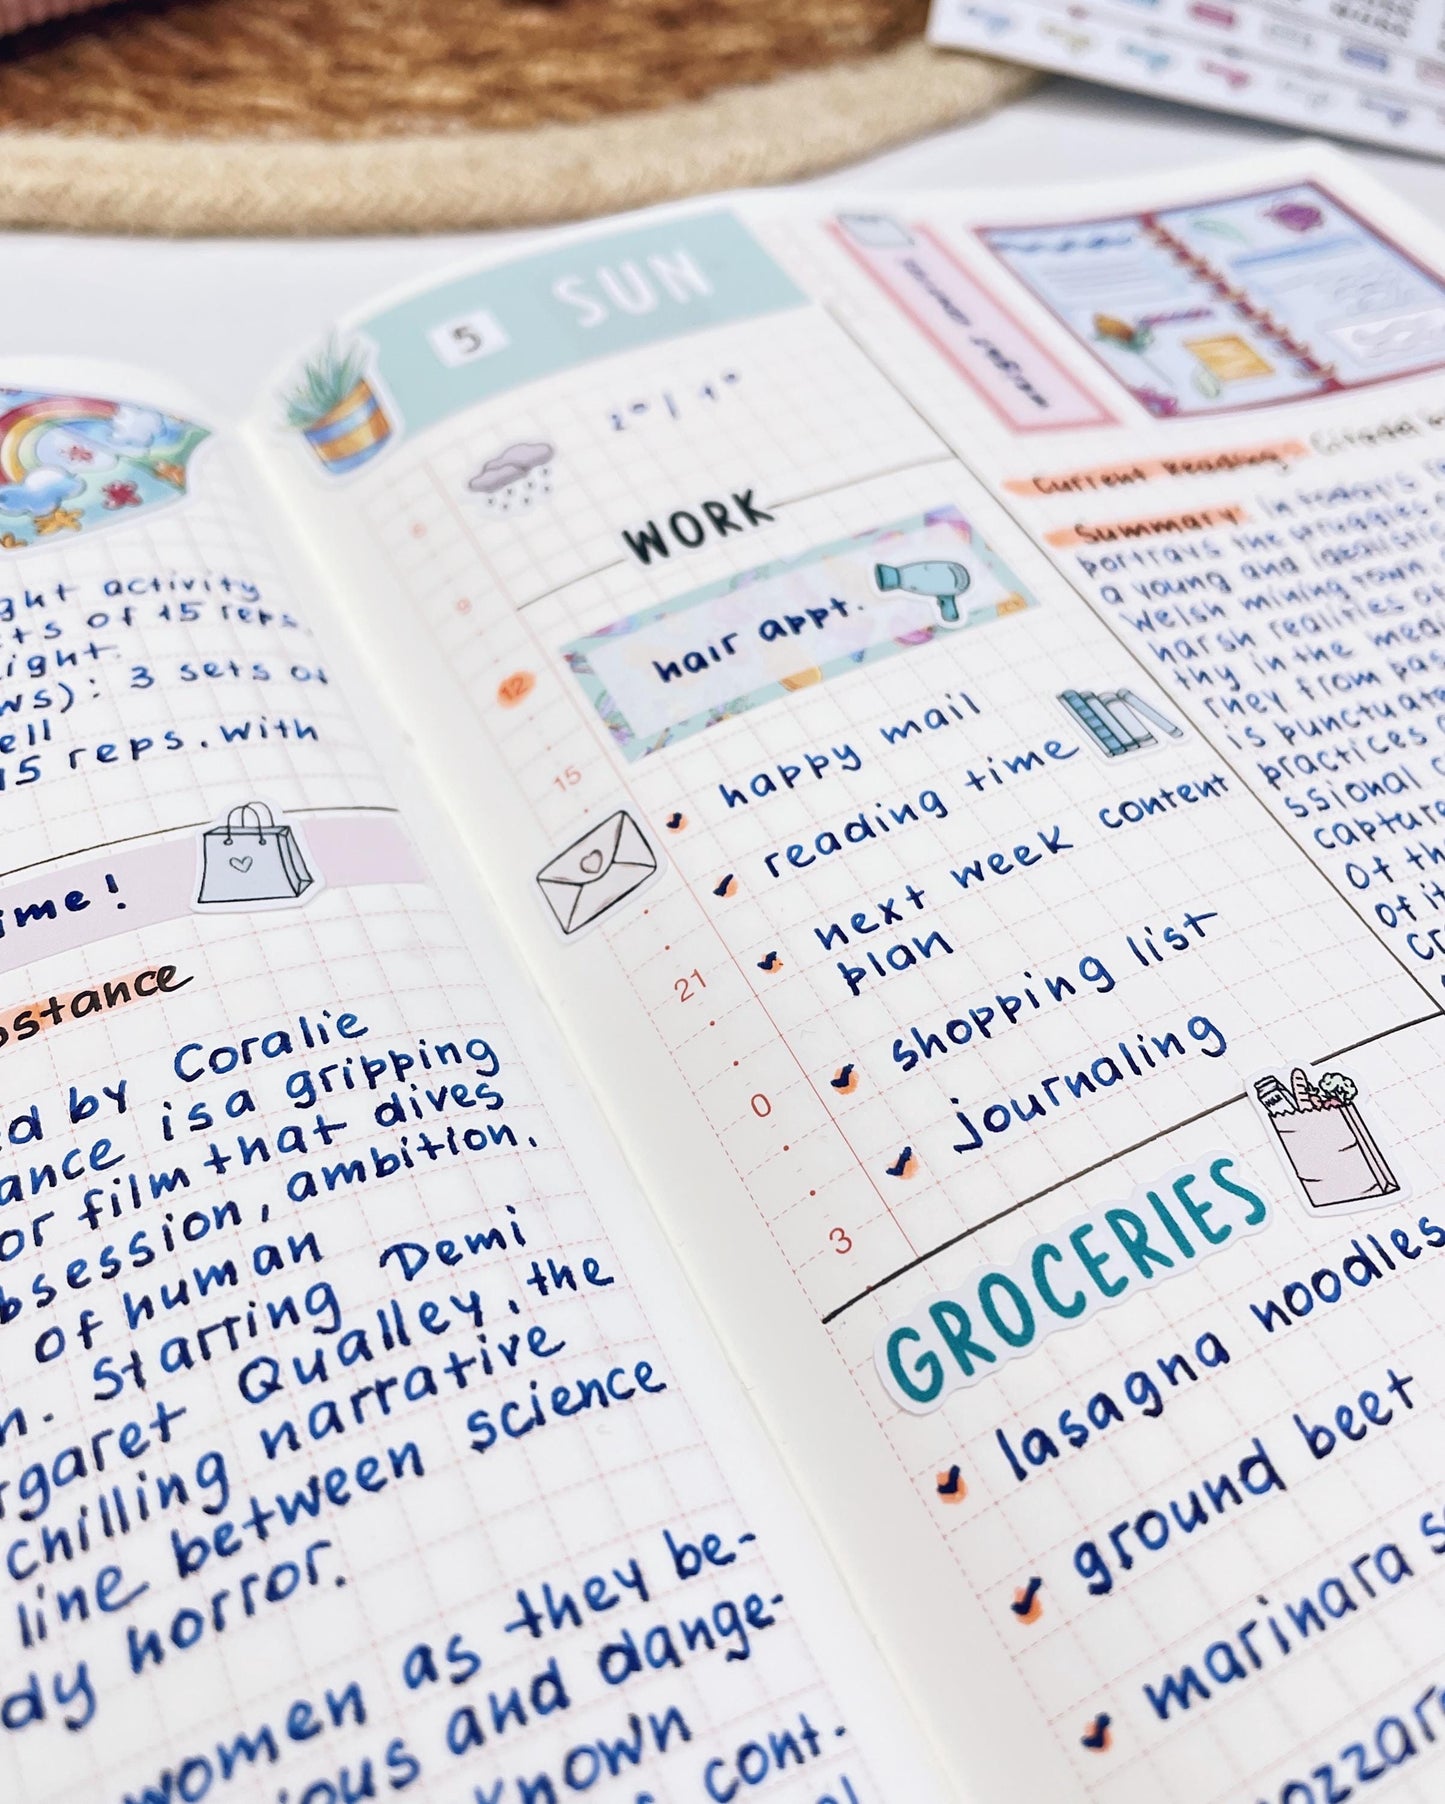 ght activity
ts of 15 reps.
ight.
ws): 3 sets of
ell
15 reps. with
ime!
bstance
ed by Coralie
ance is a gripping
or film that dives
bsession, ambition,
of human
n. Starring Demi
rgaret Qualley, the
chilling narrative
line between science
dy horror.
women as they be-
ious and dange-
known
cont.
5 SUN
WORK
hair appt.
happy mail
reading time
next week content
plan
shopping list
journaling
6
9
12
15
21
0
3
GROCERIES
lasagna noodles
ground beet
marinara s
ozzar
Current Reading: Citadel
Summary: In today's
portrays the struggles
a young and idealistic
Welsh mining town.
harsh realities
thy in the med
rney from pas
is punctuate
practices
ssional
capture
of th
of it
cr